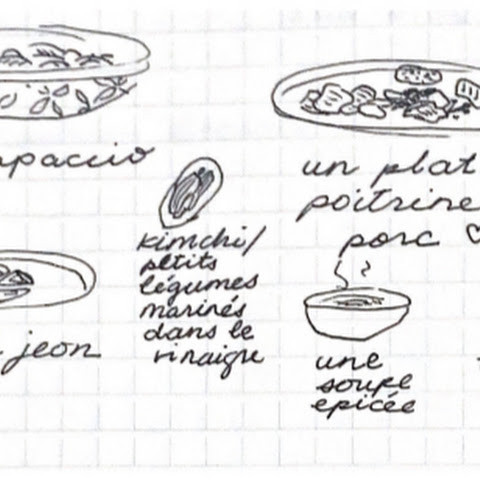 un plat
poitrine
porc ♡
kimchi/
petits
légumes
marinés
dans le
vinaigre
jeon
une
soupe
epicée